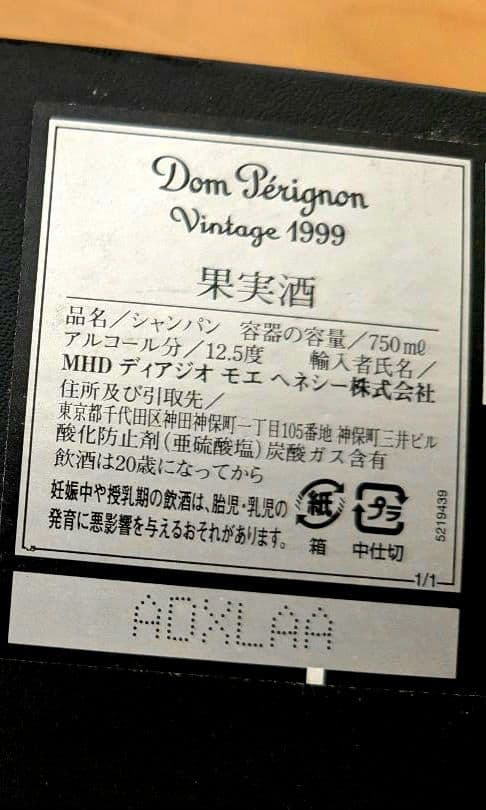 Dom Pérignon
Vintage 1999
果実酒
品名／シャンパン 容器の容量／750mℓ
アルコール分／12.5度 輸入者氏名／
MHD ディアジオ モエ ヘネシー株式会社
住所及び引取先／
東京都千代田区神田神保町一丁目105番地 神保町三井ビル
酸化防止剤(亜硫酸塩)炭酸ガス含有
飲酒は20歳になってから
妊娠中や授乳期の飲酒は、胎児・乳児の
発育に悪影響を与えるおそれがあります。
紙 プラ
箱 中仕切
5219439
1/1
ADXLAA